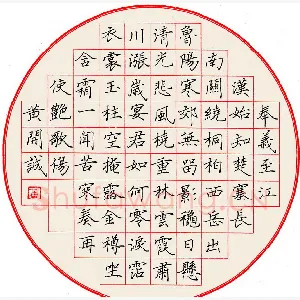 奉義至江
漢始知楚塞長
南關繞桐柏西岳出
魯陽寒郊無留影穐日懸
清光悲風橈重林雲霞肅
川漲歲宴君如何零淚霑
衣裳玉柱空掩露金樽坐
含霜一聞苦寒奏再
使艷歌傷
黄開誠